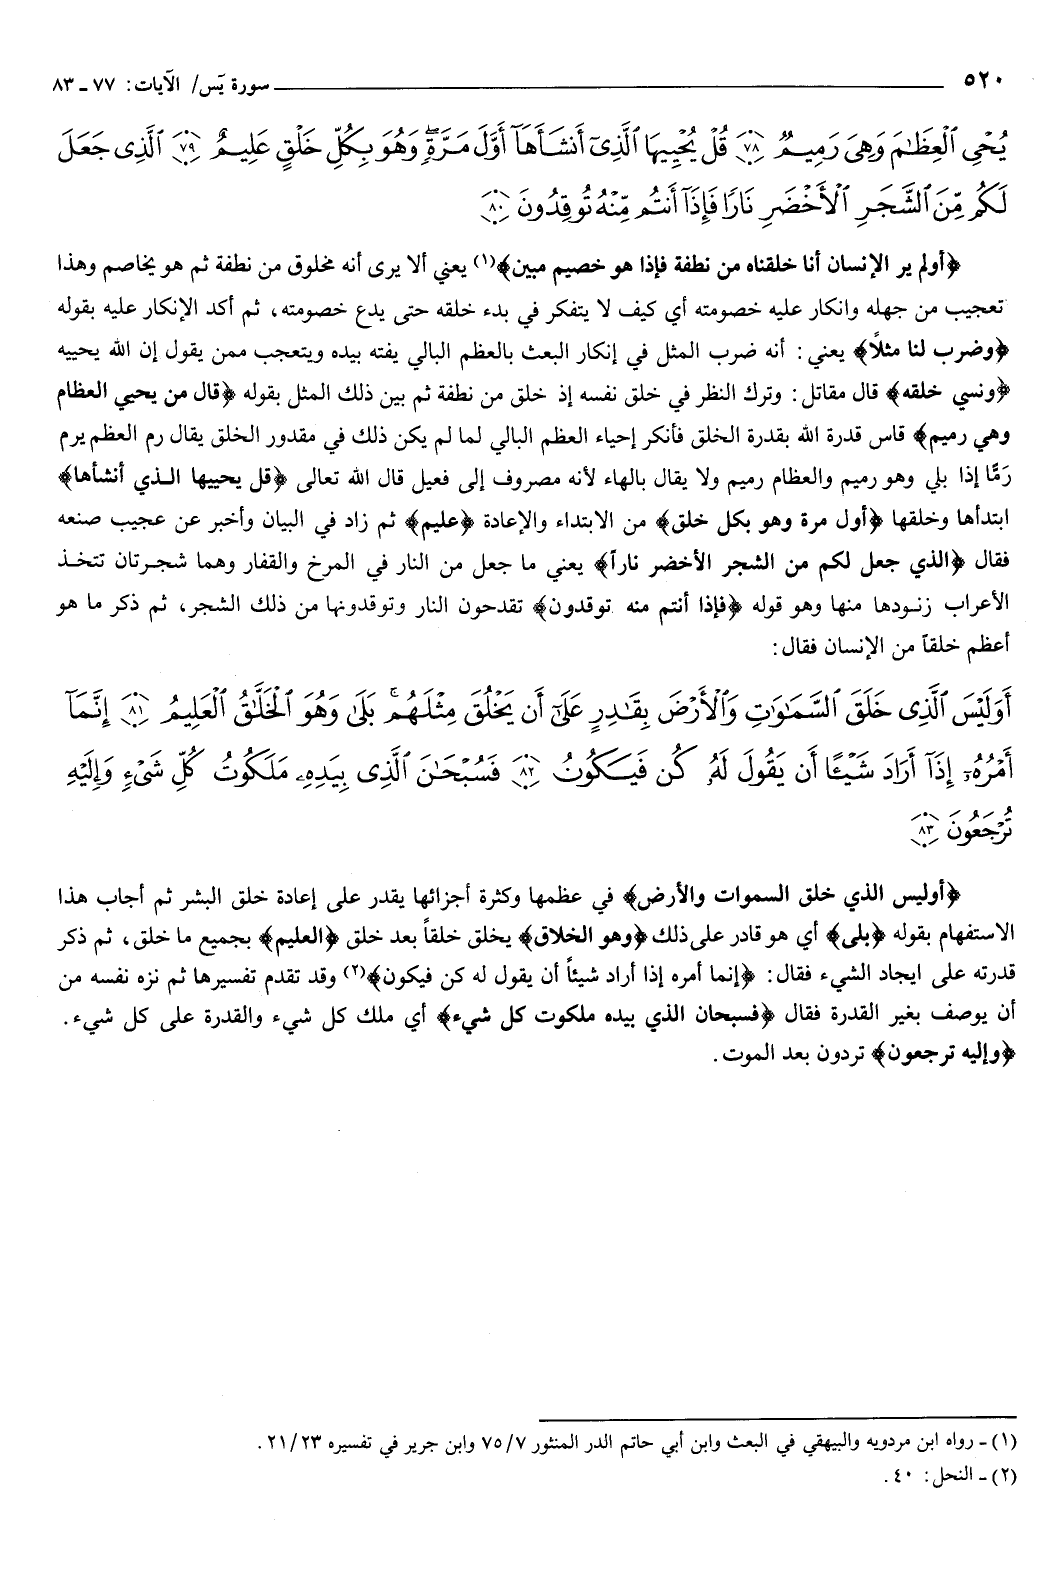 ٥٢٠ سورة يٓس/ الآيات: ٧٧ ـ ٨٣
يُحْىِ ٱلْعِظَٰمَ وَهِىَ رَمِيمٌ ﴿٧٨﴾ قُلْ يُحْيِيهَا ٱلَّذِىٓ أَنشَأَهَآ أَوَّلَ مَرَّةٍۖ وَهُوَ بِكُلِّ خَلْقٍ عَلِيمٌ ﴿٧٩﴾ ٱلَّذِى جَعَلَ
لَكُم مِّنَ ٱلشَّجَرِ ٱلْأَخْضَرِ نَارًا فَإِذَآ أَنتُم مِّنْهُ تُوقِدُونَ ﴿٨٠﴾
﴿أولم ير الإنسان أنا خلقناه من نطفة فإذا هو خصيم مبين﴾(١) يعني ألا يرى أنه مخلوق من نطفة ثم هو يخاصم وهذا
تعجيب من جهله وانكار عليه خصومته أي كيف لا يتفكر في بدء خلقه حتى يدع خصومته، ثم أكد الإنكار عليه بقوله
﴿وضرب لنا مثلاً﴾ يعني: أنه ضرب المثل في إنكار البعث بالعظم البالي يفته بيده ويتعجب ممن يقول إن الله يحييه
﴿ونسي خلقه﴾ قال مقاتل: وترك النظر في خلق نفسه إذ خلق من نطفة ثم بين ذلك المثل بقوله ﴿قال من يحيي العظام
وهي رميم﴾ قاس قدرة الله بقدرة الخلق فأنكر إحياء العظم البالي لما لم يكن ذلك في مقدور الخلق يقال رم العظم يرم
رَمًّا إذا بلي وهو رميم والعظام رميم ولا يقال بالهاء لأنه مصروف إلى فعيل قال الله تعالى ﴿قل يحييها الـذي أنشأها﴾
ابتدأها وخلقها ﴿أول مرة وهو بكل خلق﴾ من الابتداء والإعادة ﴿عليم﴾ ثم زاد في البيان وأخبر عن عجيب صنعه
فقال ﴿الذي جعل لكم من الشجر الأخضر ناراً﴾ يعني ما جعل من النار في المرخ والقفار وهما شجـرتان تتخـذ
الأعراب زنـودها منها وهو قوله ﴿فإذا أنتم منه توقدون﴾ تقدحون النار وتوقدونها من ذلك الشجر، ثم ذكر ما هو
أعظم خلقاً من الإنسان فقال:
أَوَلَيْسَ ٱلَّذِى خَلَقَ ٱلسَّمَٰوَٰتِ وَٱلْأَرْضَ بِقَٰدِرٍ عَلَىٰٓ أَن يَخْلُقَ مِثْلَهُمۚ بَلَىٰ وَهُوَ ٱلْخَلَّٰقُ ٱلْعَلِيمُ ﴿٨١﴾ إِنَّمَآ
أَمْرُهُۥٓ إِذَآ أَرَادَ شَيْـًٔا أَن يَقُولَ لَهُۥ كُن فَيَكُونُ ﴿٨٢﴾ فَسُبْحَٰنَ ٱلَّذِى بِيَدِهِۦ مَلَكُوتُ كُلِّ شَىْءٍ وَإِلَيْهِ
تُرْجَعُونَ ﴿٨٣﴾
﴿أوليس الذي خلق السموات والأرض﴾ في عظمها وكثرة أجزائها يقدر على إعادة خلق البشر ثم أجاب هذا
الاستفهام بقوله ﴿بلى﴾ أي هو قادر على ذلك ﴿وهو الخلاق﴾ يخلق خلقاً بعد خلق ﴿العليم﴾ بجميع ما خلق، ثم ذكر
قدرته على ايجاد الشيء فقال: ﴿إنما أمره إذا أراد شيئاً أن يقول له كن فيكون﴾(٢) وقد تقدم تفسيرها ثم نزه نفسه من
أن يوصف بغير القدرة فقال ﴿فسبحان الذي بيده ملكوت كل شيء﴾ أي ملك كل شيء والقدرة على كل شيء.
﴿وإليه ترجعون﴾ تردون بعد الموت.
(١) ـ رواه ابن مردويه والبيهقي في البعث وابن أبي حاتم الدر المنثور ٧٥/٧ وابن جرير في تفسيره ٢١/٢٣.
(٢) ـ النحل: ٤٠.